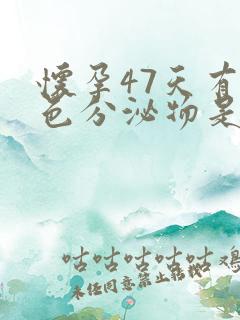 懷孕47天有
色分泌物是
咕咕咕咕咕鴻
未经同意禁止转载